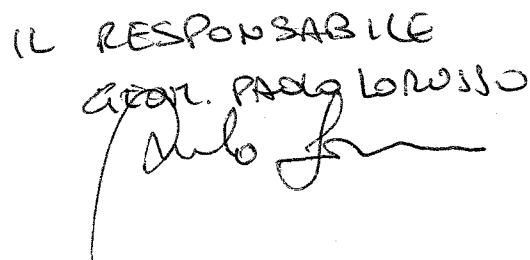 IL RESPONSABILE
GEOM. PAOLO LORUSSO
Paolo